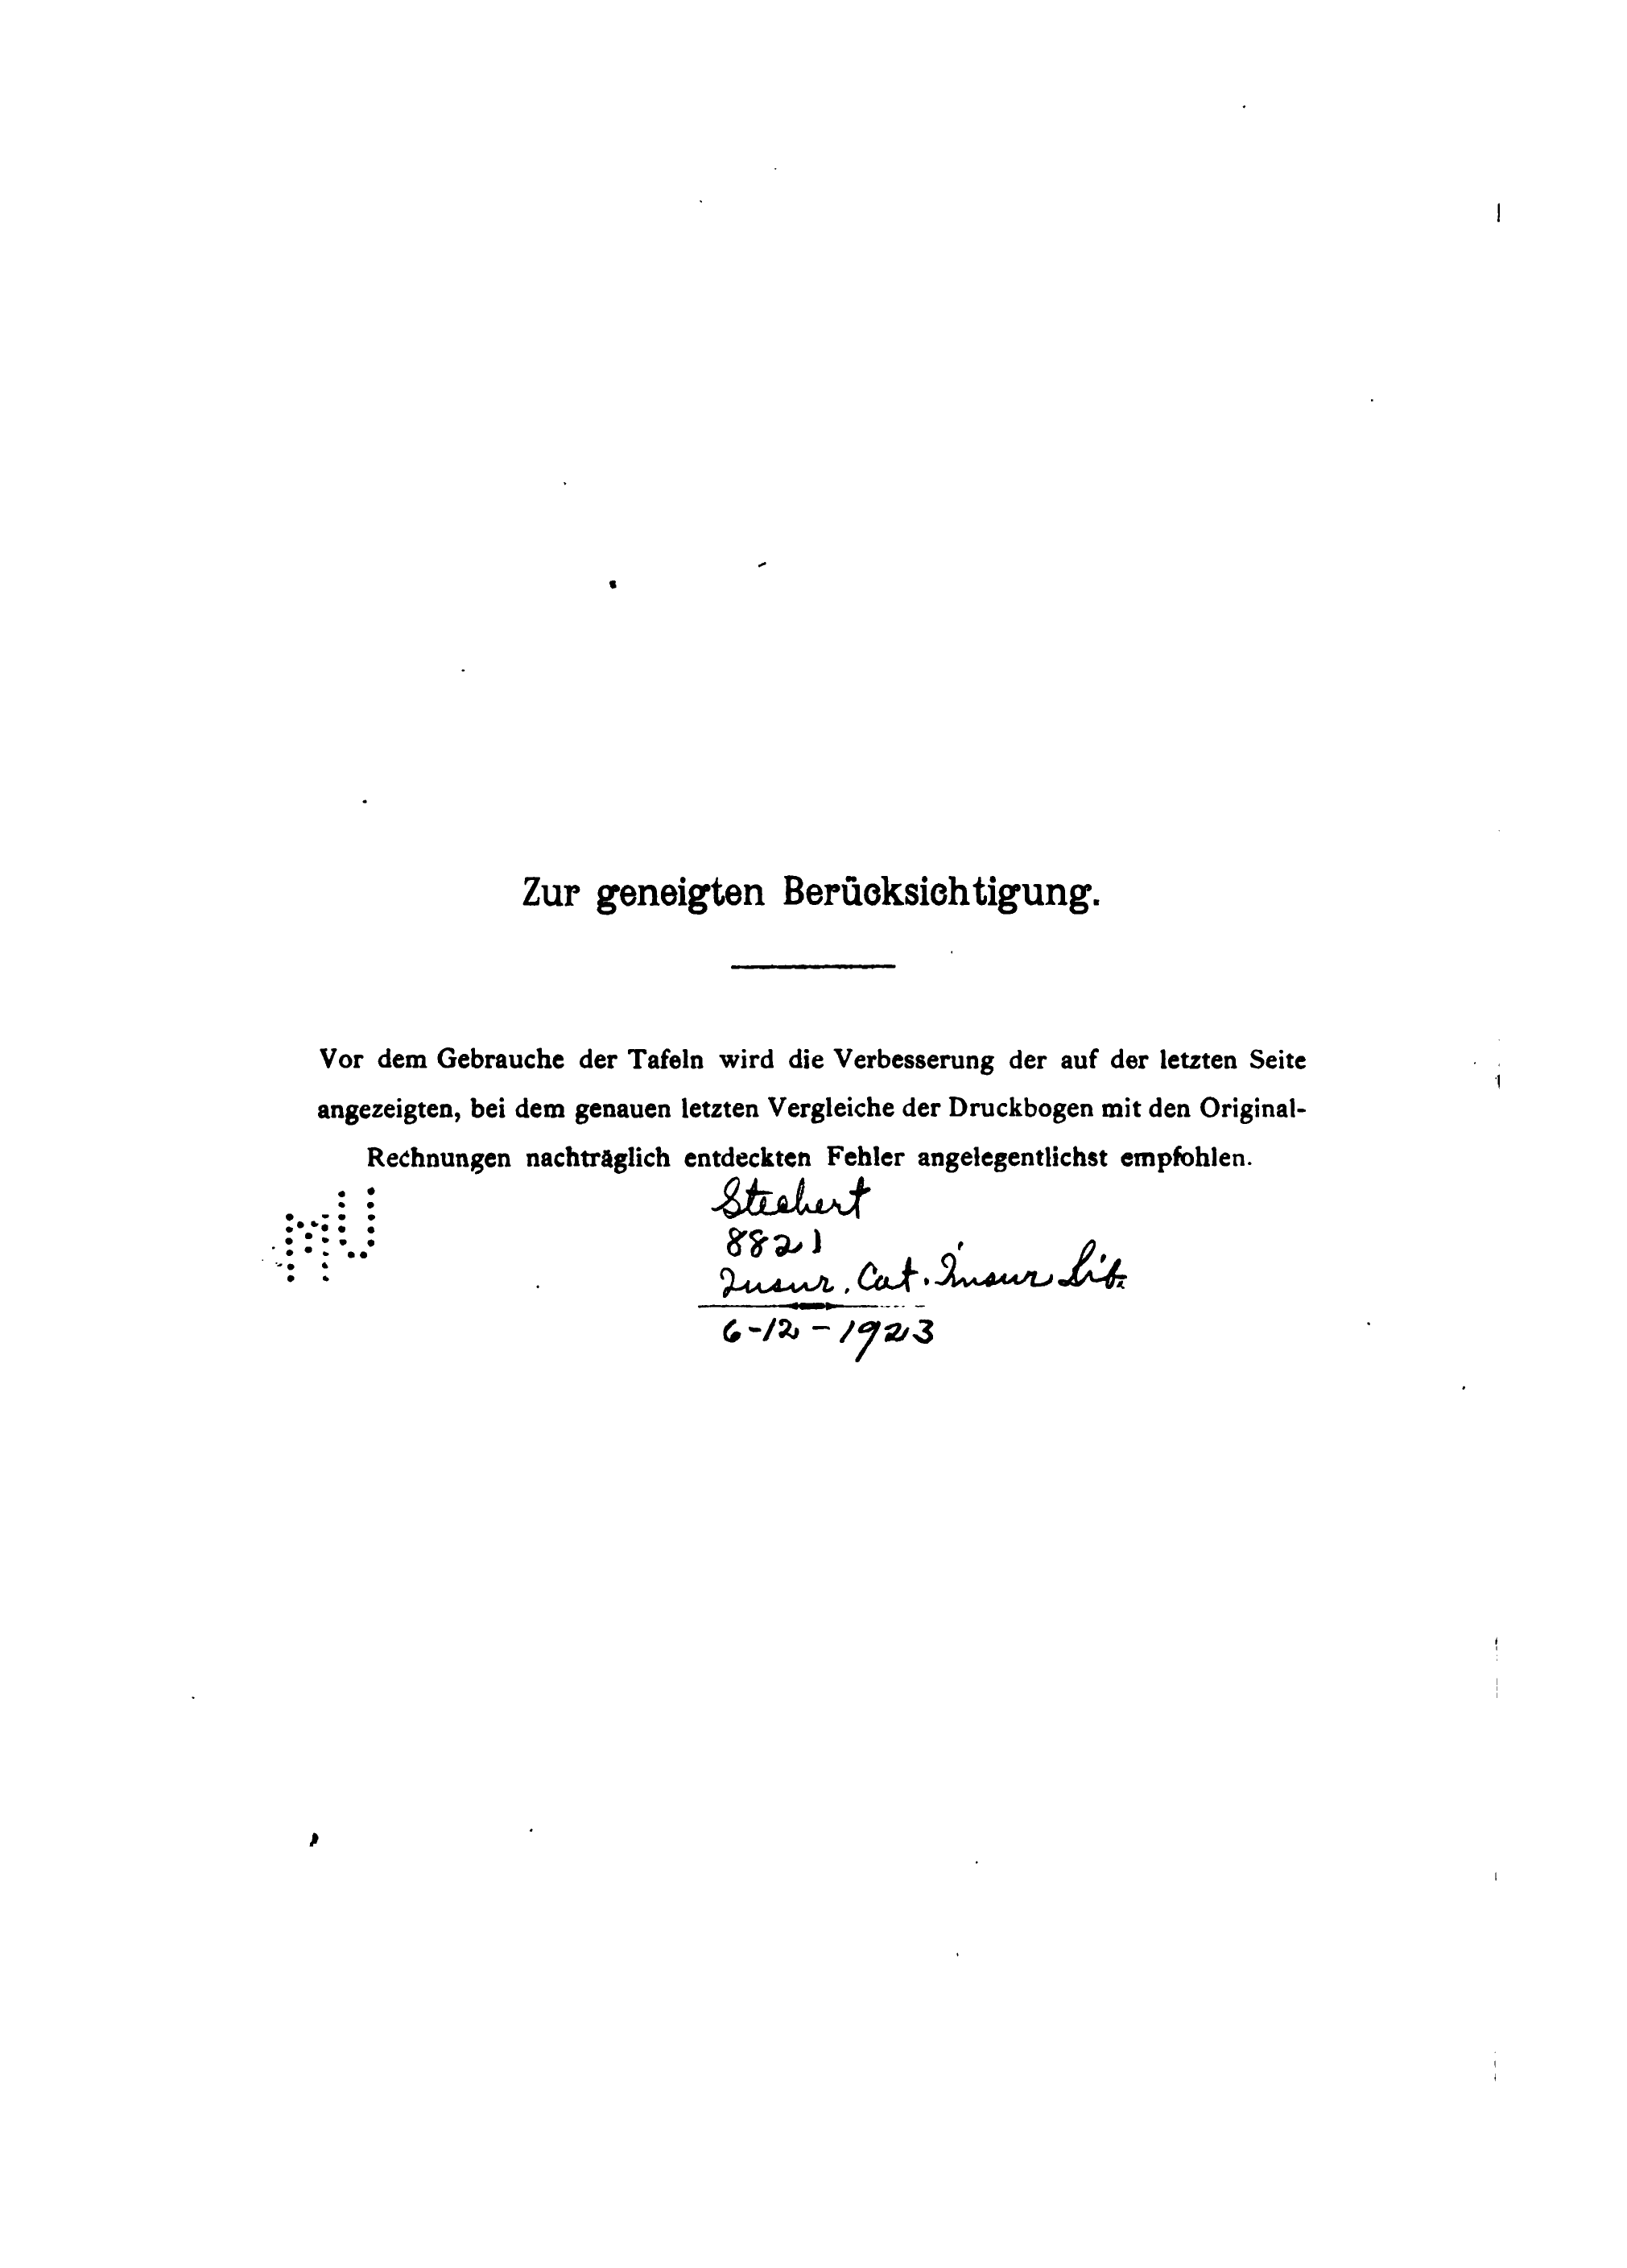 Zur geneigten Berücksichtigung.
Vor dem Gebrauche der Tafeln wird die Verbesserung der auf der letzten Seite
angezeigten, bei dem genauen letzten Vergleiche der Druckbogen mit den Original-
Rechnungen nachträglich entdeckten Fehler angelegentlichst empfohlen.
Stechert
8821
Insur. Cat. Insur Lib.
6-12-1923